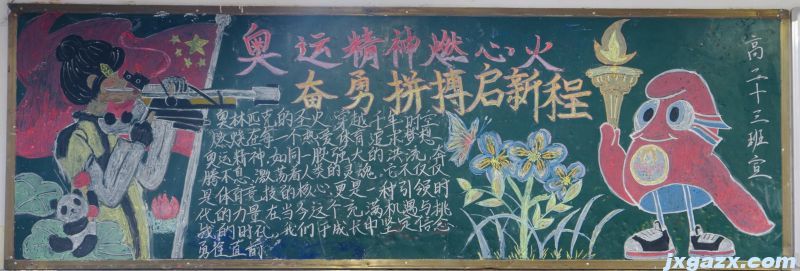 奥运精神燃心火
奋勇拼搏启新程
奥林匹克的圣火,穿越千年时空
燃烧在每一个热爱体育追求梦想
奥运精神,如同一股强大的洪流,奔
腾不息,激荡着人类的灵魂。它不仅仅
是体育竞技的核心,更是一种引领时
代的力量在当今这个充满机遇与挑
战的时代,我们于成长中坚定信念
勇往直前
高二十三班宣
jxgazx.com